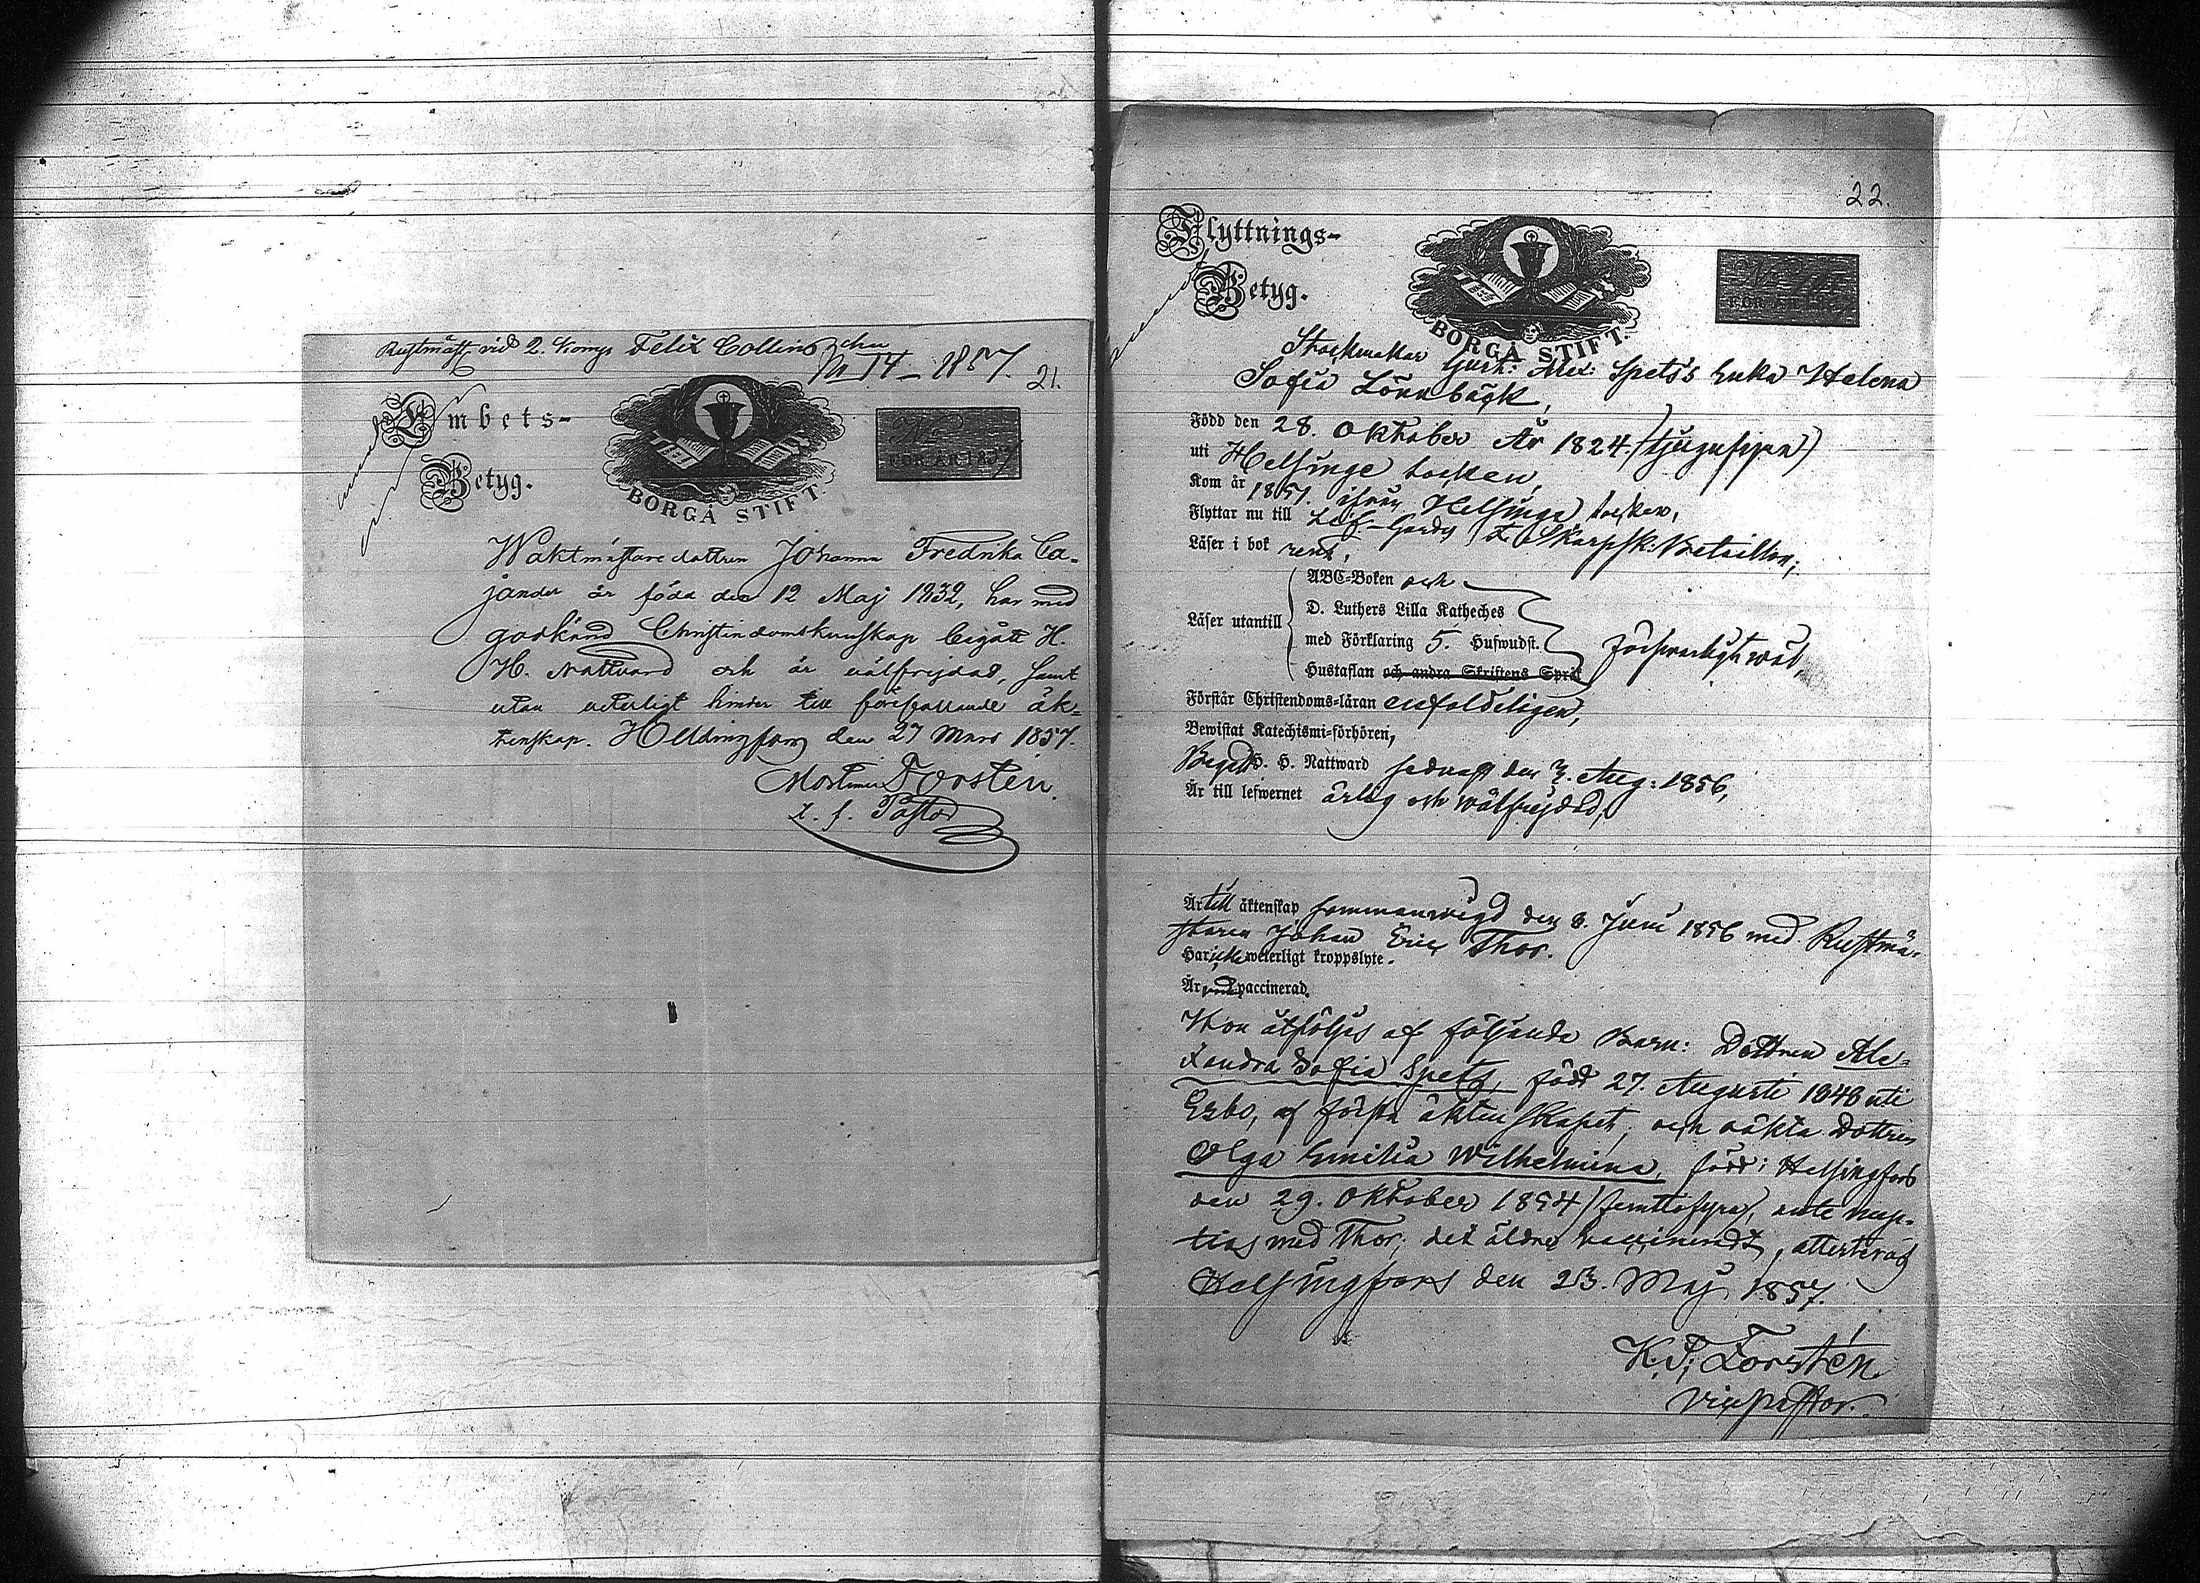 Rustmäst vid 2. Komp Felix Collin
N 14 – 1857.
21.
Embets-
Betyg.
BORGÅ STIFT.
FÖR ÅR 1857
Waktmästare dottren Johanna Fredrika Ca-
jander är född den 12 Maj 1832, har med
godkänd Christendomskunskap begått H.
H. Nattvard och är välfrejdad, samt
utan veterligt hinder till förestående äk-
tenskap. Helsingfors den 27 Mars 1857.
Mortimer Forstén.
t. f. Pastor
22.
Flyttnings-
Betyg.
BORGÅ STIFT.
FÖR ÅR
Alex: Spets's Enka Helena
Sofia Lönnbäck,
Född den 28. Oktober År 1824. (tjugufyra)
uti Helsinge socken,
Kom år 1851. ifrån Helsinge socken,
Flyttar nu till Lif-Gardes F. Skarpsk: Bataillon;
Läser i bok rent,
Läser utantill
ABC-Boken och
D. Luthers Lilla Katheches
med Förklaring 5. Hufwudst.
Hustaflan och andra Skriftens Språk
försvarligt wäl,
Förstår Christendoms-läran enfaldeligen,
Bewistat Katechismi-förhören,
Begått H. H. Nattward sednast den 3. Aug: 1856,
Är till lefwernet ärlig och wälfrejdad,
Är till äktenskap sammanwigd den 8. Juni 1856 med Rustmä-
staren Johan Eric Thor.
Har icke weterligt kroppslyte.
Är vaccinerad.
Hon åtföljes af följande Barn: Dottren Ale-
xandra Sofia Spets, född 27. Augusti 1848 uti
Esbo, af första äktenskapet, och oäkta Dottren
Olga Emilia Wilhelmina, född i Helsingfors
den 29. Oktober 1854 (femtiofyra), ante nup-
tias med Thor; det äldre vaccineradt, attesteras
Helsingfors den 23. Maj 1857.
K. J. Forstén
Vicepastor.